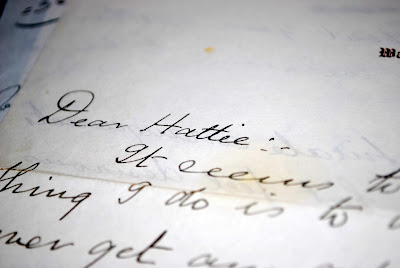 Dear Hattie :-
It seems to
thing I do is to
ever get